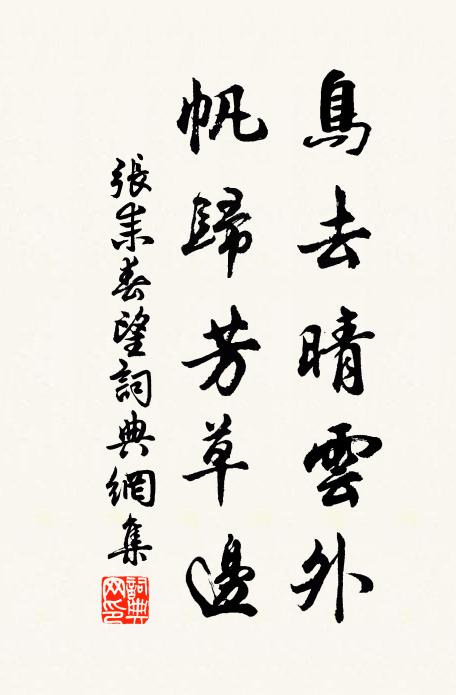 鳥去晴雲外
帆歸芳草邊
張耒春望詞典網集
詞典網印